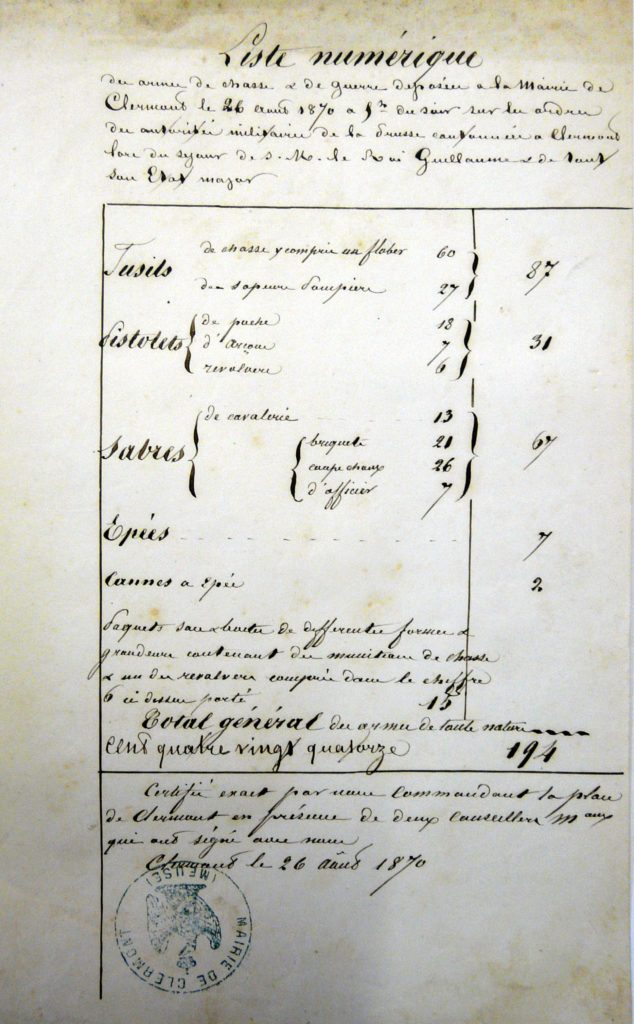 Liste numérique
des armes de chasse & de guerre déposées a la Mairie de
Clermont le 26 Aout 1870 a 5h du soir sur les ordres
des autorités militaires de la Prusse cantonnées a Clermont
lors du séjour de S. M. le Roi Guillaume & de tout
son Etat major
Fusils de chasse y compris un flober 60
des sapeurs Pompiers 27
87
Pistolets de poche 18
d'arçons 7
revolvers 6
31
Sabres de cavalerie 13
briquets 21
coupe choux 26
d'officier 7
67
Epées 7
Cannes a Epée 2
Paquets sacs & boites de differentes formes &
grandeurs contenant des munitions de chasse
& un des revolvers compris dans le chiffre
6 ci dessus porté 15
Total général des armes de toute nature
Cent quatre vingt quatorze 194
Certifié exact par nous Commandant la place
de Clermont en présence de deux Conseillers Maux
qui ont signé avec nous
Clermont le 26 Août 1870
MAIRIE DE CLERMONT
(MEUSE)